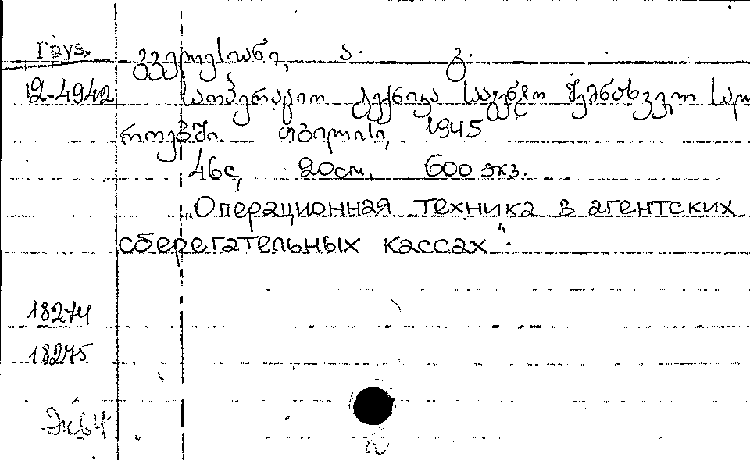 Груз.
12-4942
გველესიანი, ა. გ.
საოპერაციო ტექნიკა სააგენტო შემნახველ სალაროებში. თბილისი, 1945
46с, 20см, 600 экз.
„Операционная техника в агентских
сберегательных кассах".
18274
18275